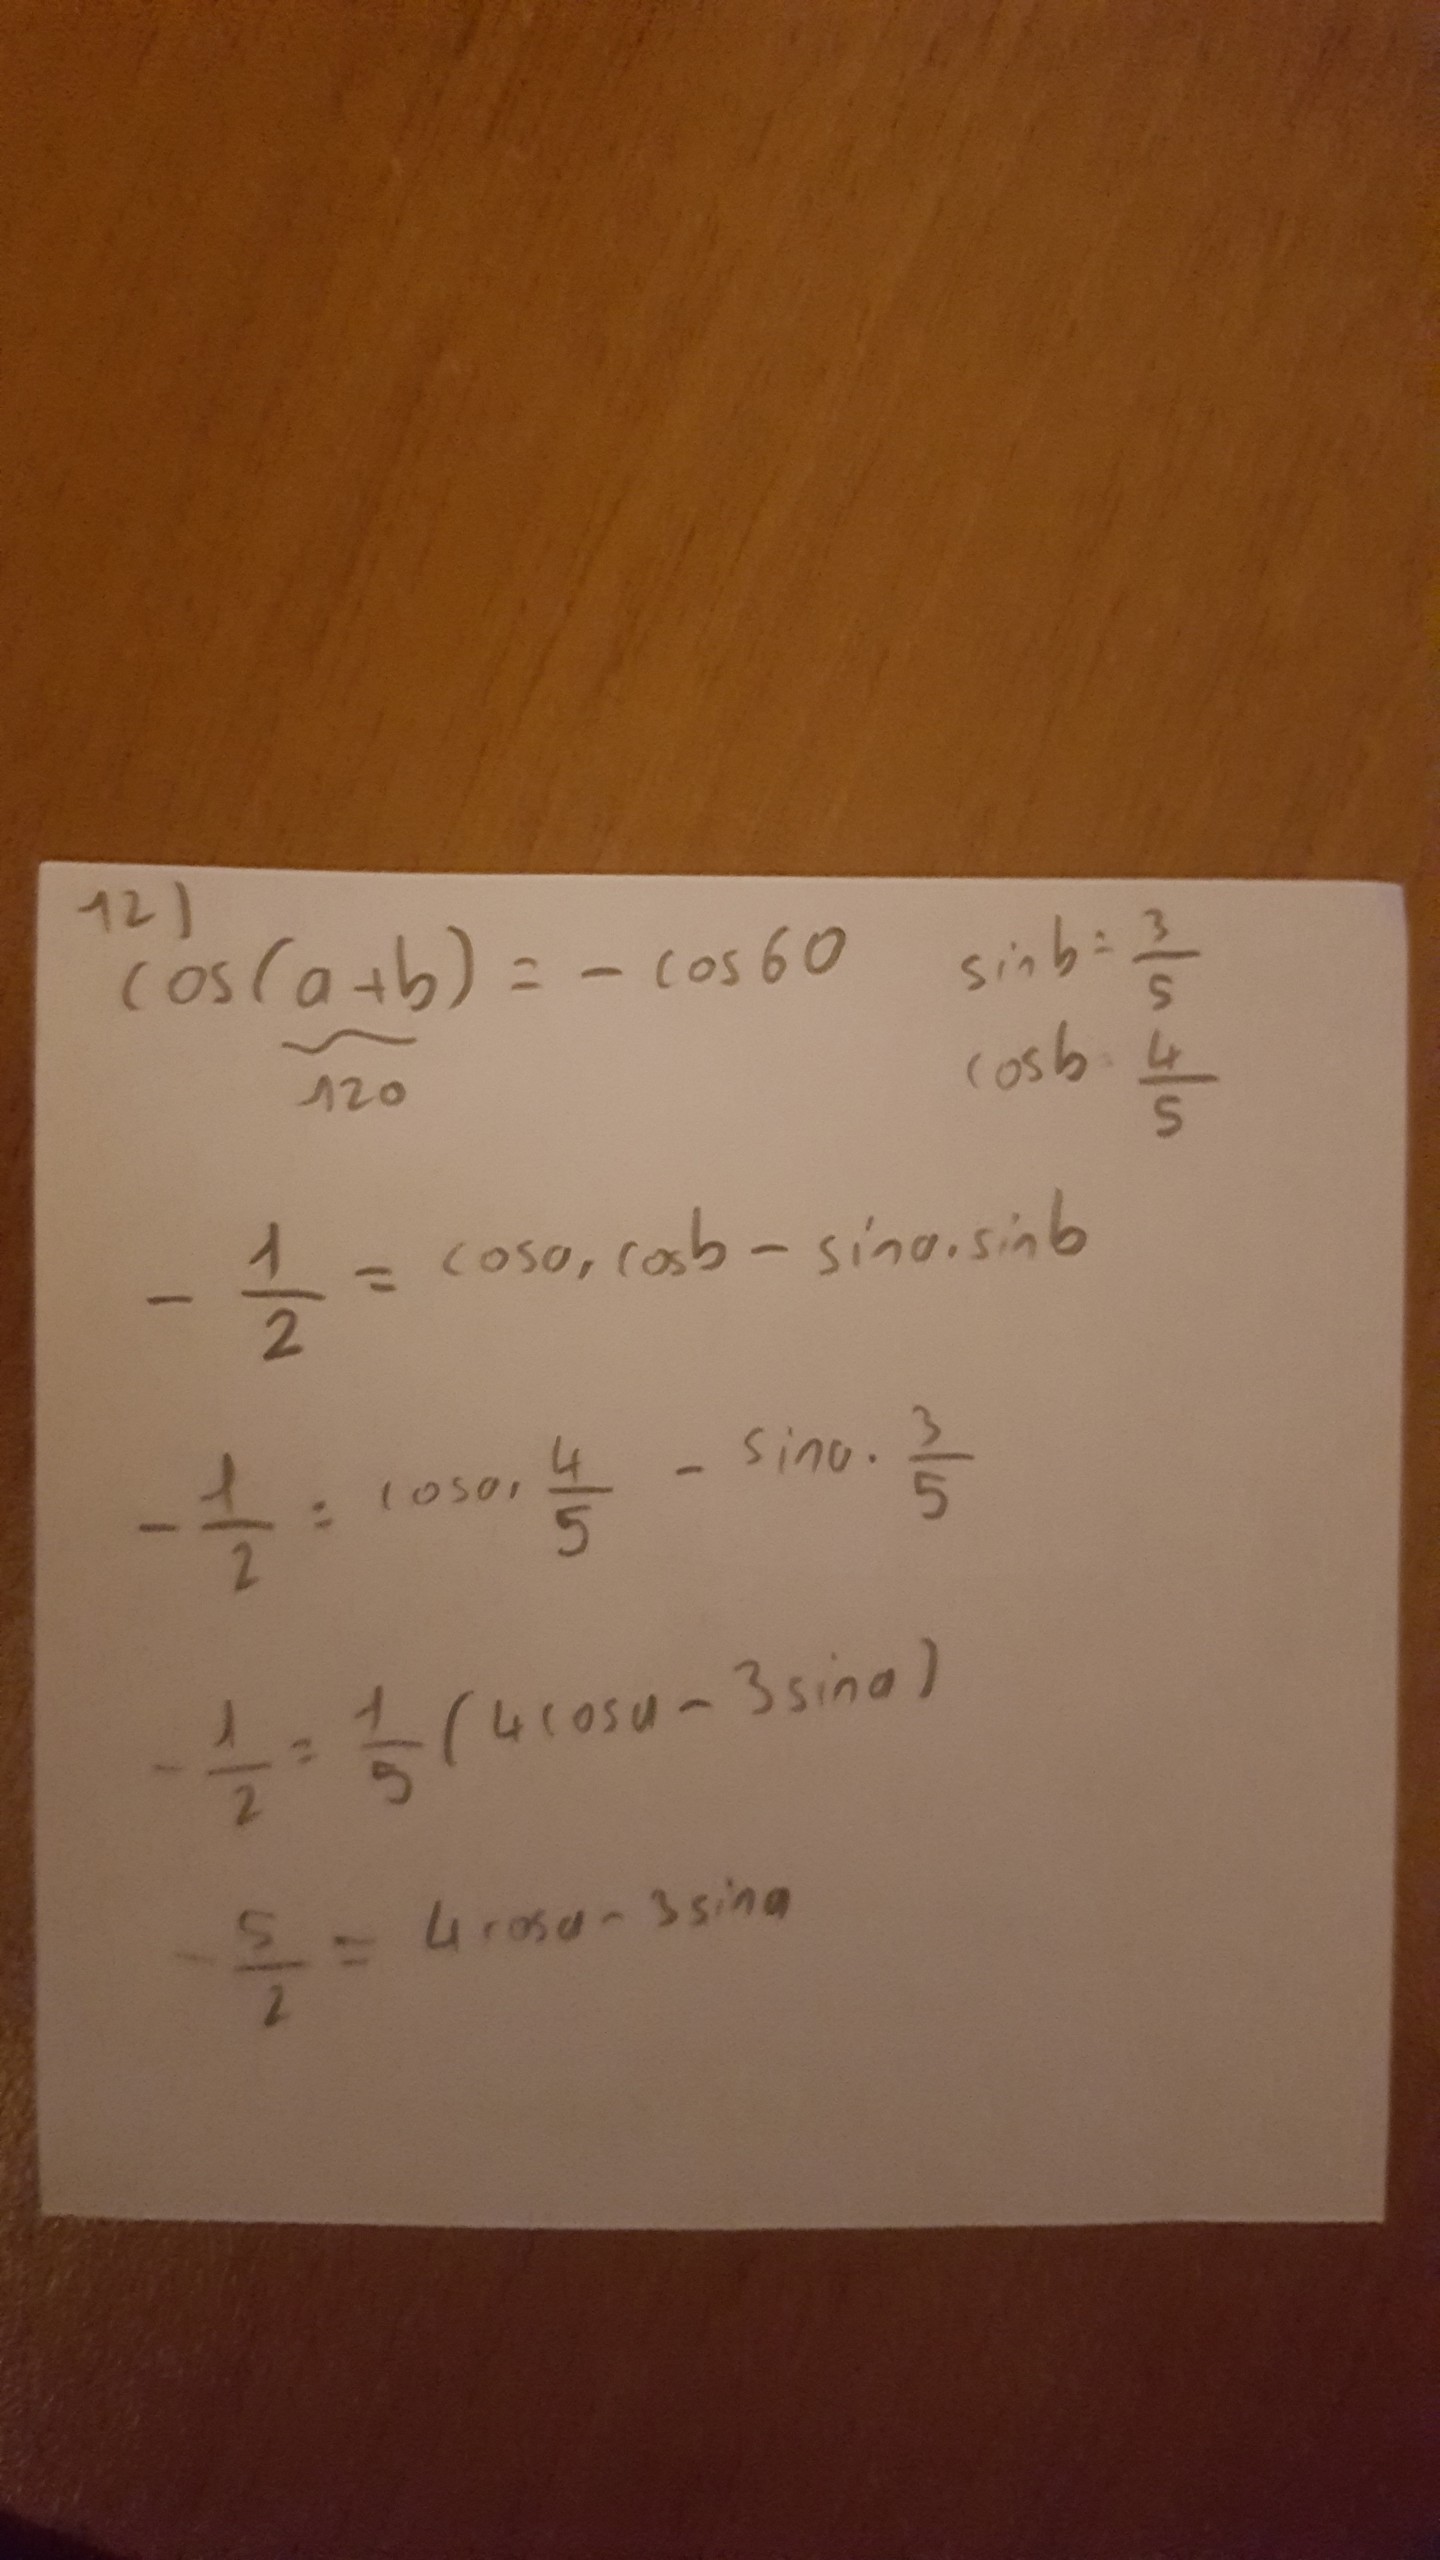 12)
cos(a+b) = - cos60
120
sinb = 3/5
cosb = 4/5
- 1/2 = cosa.cosb - sina.sinb
- 1/2 = cosa. 4/5 - sina. 3/5
- 1/2 = 1/5 (4cosa - 3sina)
- 5/2 = 4cosa - 3sina